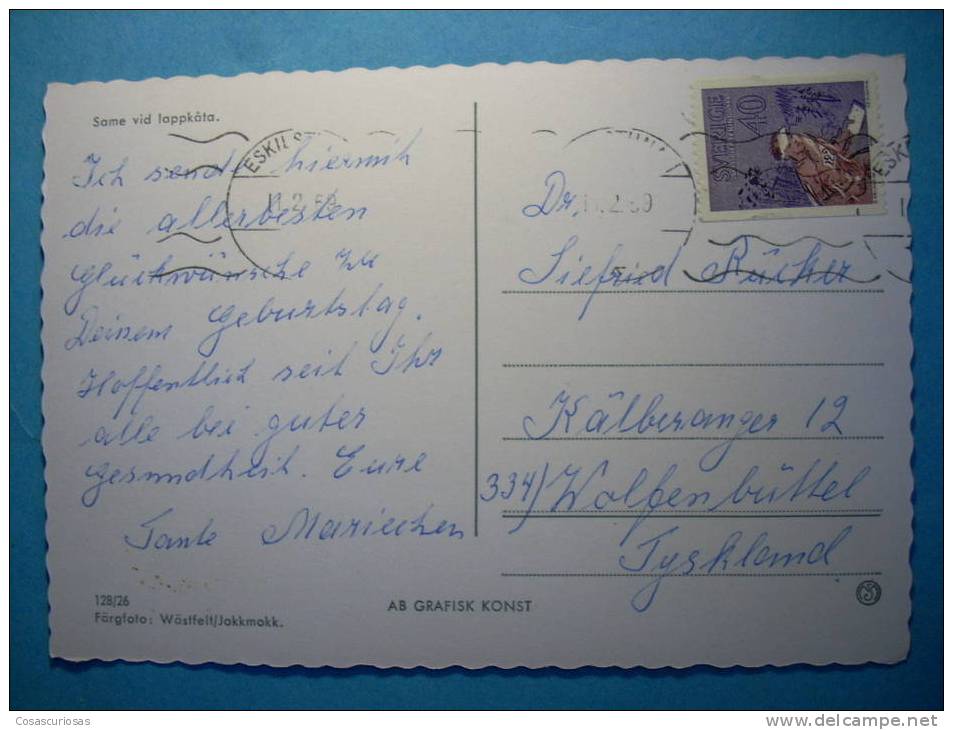 Same vid lappkåta.
Ich sende hiermit
die allerbesten
Glückwünsche zu
Deinem Geburtstag.
Hoffentlich seit Ihr
alle bei guter
Gesundheit. Eure
Tante Mariechen
128/26
Färgfoto: Wästfelt/Jokkmokk.
AB GRAFISK KONST
SVERIGE 40
ESKILST
11.2.69
Dr.
Siefried Rücker
Kälberanger 12
334) Wolfenbüttel
Tyskland
Cosascuriosas
www.delcampe.net